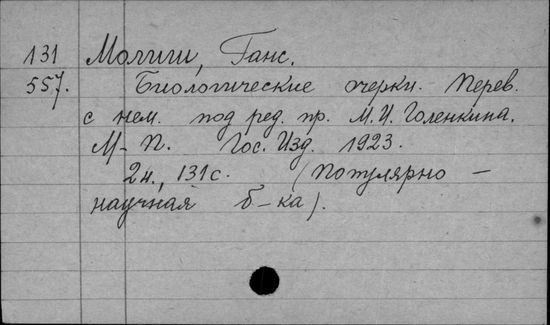 131 Молиш, Ганс.
557. Биологические очерки. Перев.
с нем. под ред. пр. М. И. Голенкина.
М-П. Гос. Изд. 1923.
2н., 131 с. (Популярно –
научная б-ка).